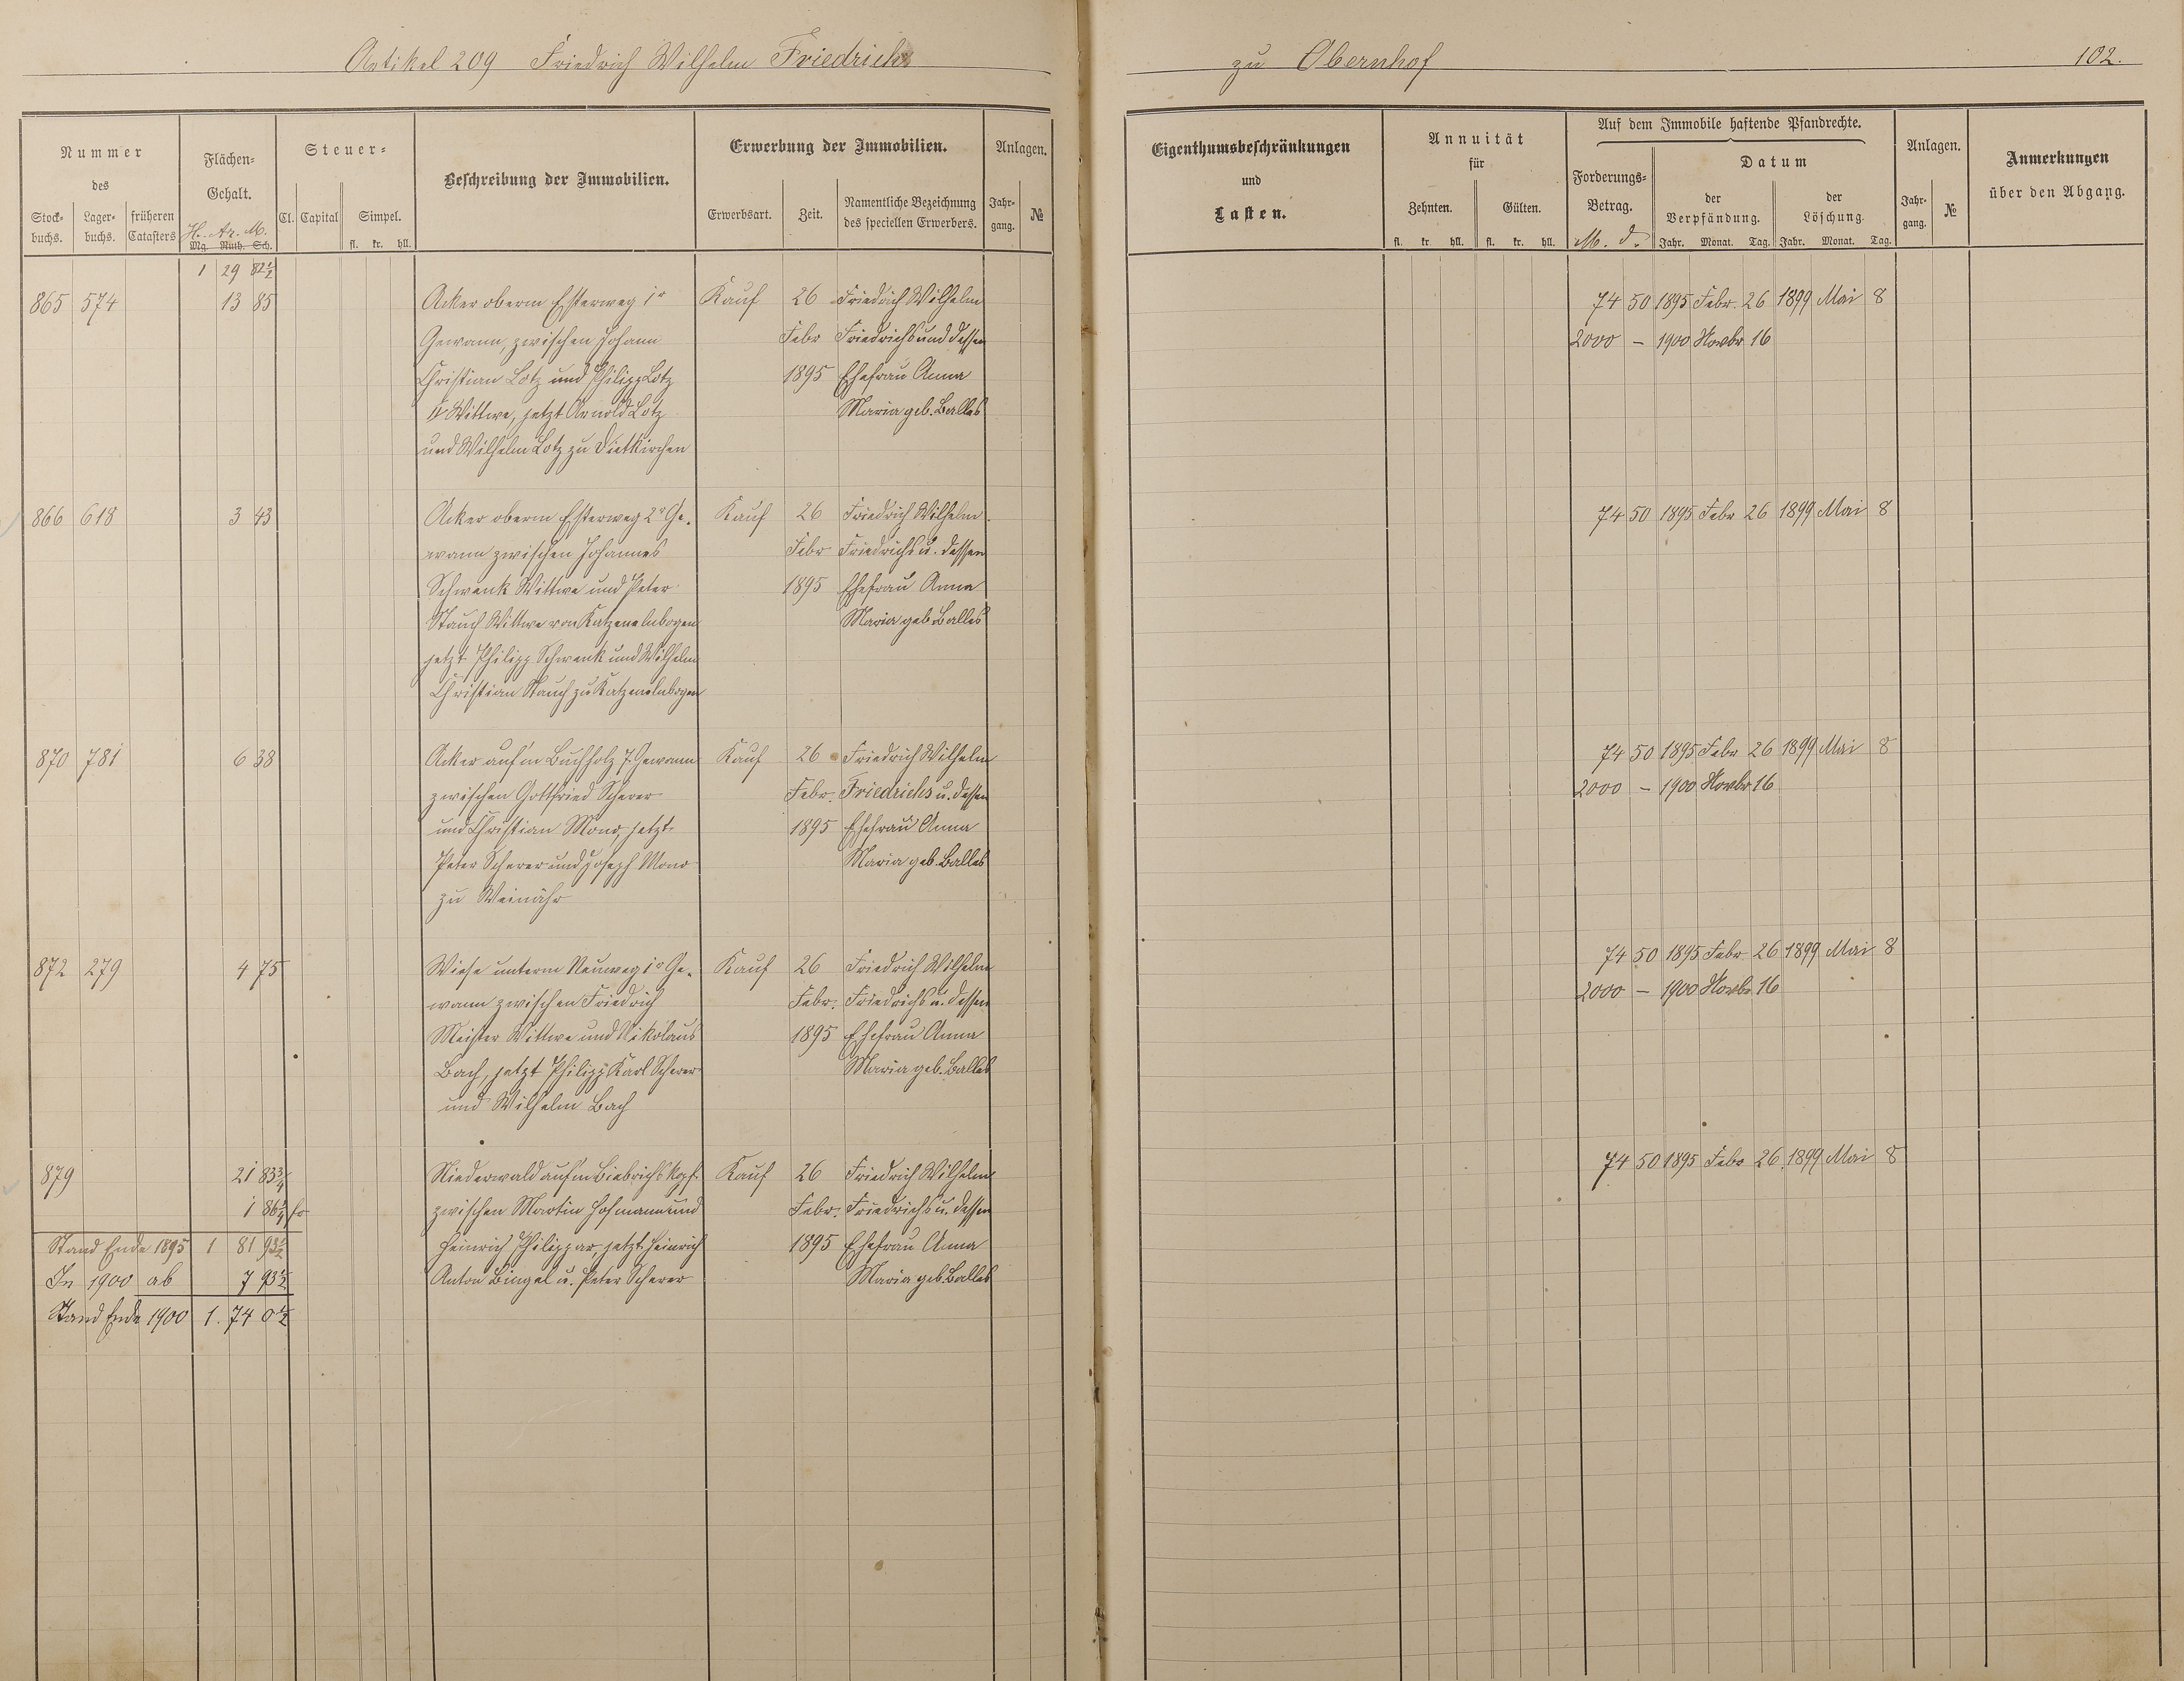 Artikel 209 Friedrich Wilhelm Friedrichs
zu Obernhof
102.
Nummer des
Stock- buchs. Lager- buchs. früheren Catasters
Flächen- Gehalt.
H. Ar. M.
Mg. Ruth. Sch.
Steuer-
Cl. Capital Simpel.
fl. kr. hll.
Beschreibung der Immobilien.
Erwerbung der Immobilien.
Erwerbsart. Zeit. Namentliche Bezeichnung des speciellen Erwerbers.
Anlagen.
Jahr- gang. №
Eigenthumsbeschränkungen
und
Lasten.
Annuität
für
Zehnten. Gülten.
fl. kr. hll. fl. kr. hll.
Auf dem Immobile haftende Pfandrechte.
Forderungs- Betrag.
M. d.
Datum
der Verpfändung. der Löschung.
Jahr. Monat. Tag. Jahr. Monat. Tag.
Anlagen.
Jahr- gang. №
Anmerkungen
über den Abgang.
1 29 82½
865 574 13 85 Acker oberm Esterweg 1r Kauf 26 Friedrich Wilhelm 74 50 1895 Febr. 26 1899 Mai 8
Gewann, zwischen Johann Febr Friedrichs und dessen 2000 – 1900 Novbr 16
Christian Lotz und Philipp Lotz 1895 Ehefrau Anna
Wittwe, jetzt Arnold Lotz Maria geb. Balles
und Wilhelm Lotz zu Dietkirchen
866 618 3 43 Acker oberm Esterweg 2r Ge- Kauf 26 Friedrich Wilhelm 74 50 1895 Febr 26 1899 Mai 8
wann zwischen Johannes Febr Friedrichs u. dessen
Schwenk Wittwe und Peter 1895 Ehefrau Anna
Stauch Wittwe von Katzenelnbogen Maria geb Balles
jetzt Philipp Schwenk und Wilhelm
Christian Stauch zu Katzenelnbogen
870 781 6 38 Acker auf'm Buchholz 7. Gewann Kauf 26 Friedrich Wilhelm 74 50 1895 Febr 26 1899 Mai 8
zwischen Gottfried Scherer Febr. Friedrichs u. dessen 2000 – 1900 Novbr 16
und Christian Mono, jetzt 1895 Ehefrau Anna
Peter Scherer und Joseph Mono Maria geb. Balles
zu Weinähr
872 279 4 75 Wiese unterm Neuweg 1r Ge- Kauf 26 Friedrich Wilhelm 74 50 1895 Febr. 26 1899 Mai 8
wann zwischen Friedrich Febr. Friedrichs u. dessen 2000 – 1900 Novbr 16
Meister Wittwe und Nikolaus 1895 Ehefrau Anna
Bach, jetzt Philipp Karl Scherer Maria geb. Balles
und Wilhelm Bach
879 21 83¾ Niederwald auf'm Biebrichskopf Kauf 26 Friedrich Wilhelm 74 50 1895 Febr 26 1899 Mai 8
1 86¼ zwischen Martin Hofmann und Febr. Friedrichs u. dessen
Stand Ende 1895 1 81 93½ Heinrich Philippar, jetzt Heinrich 1895 Ehefrau Anna
In 1900 ab 7 93½ Anton Bingel u. Peter Scherer Maria geb. Balles
Stand Ende 1900 1. 74 0½